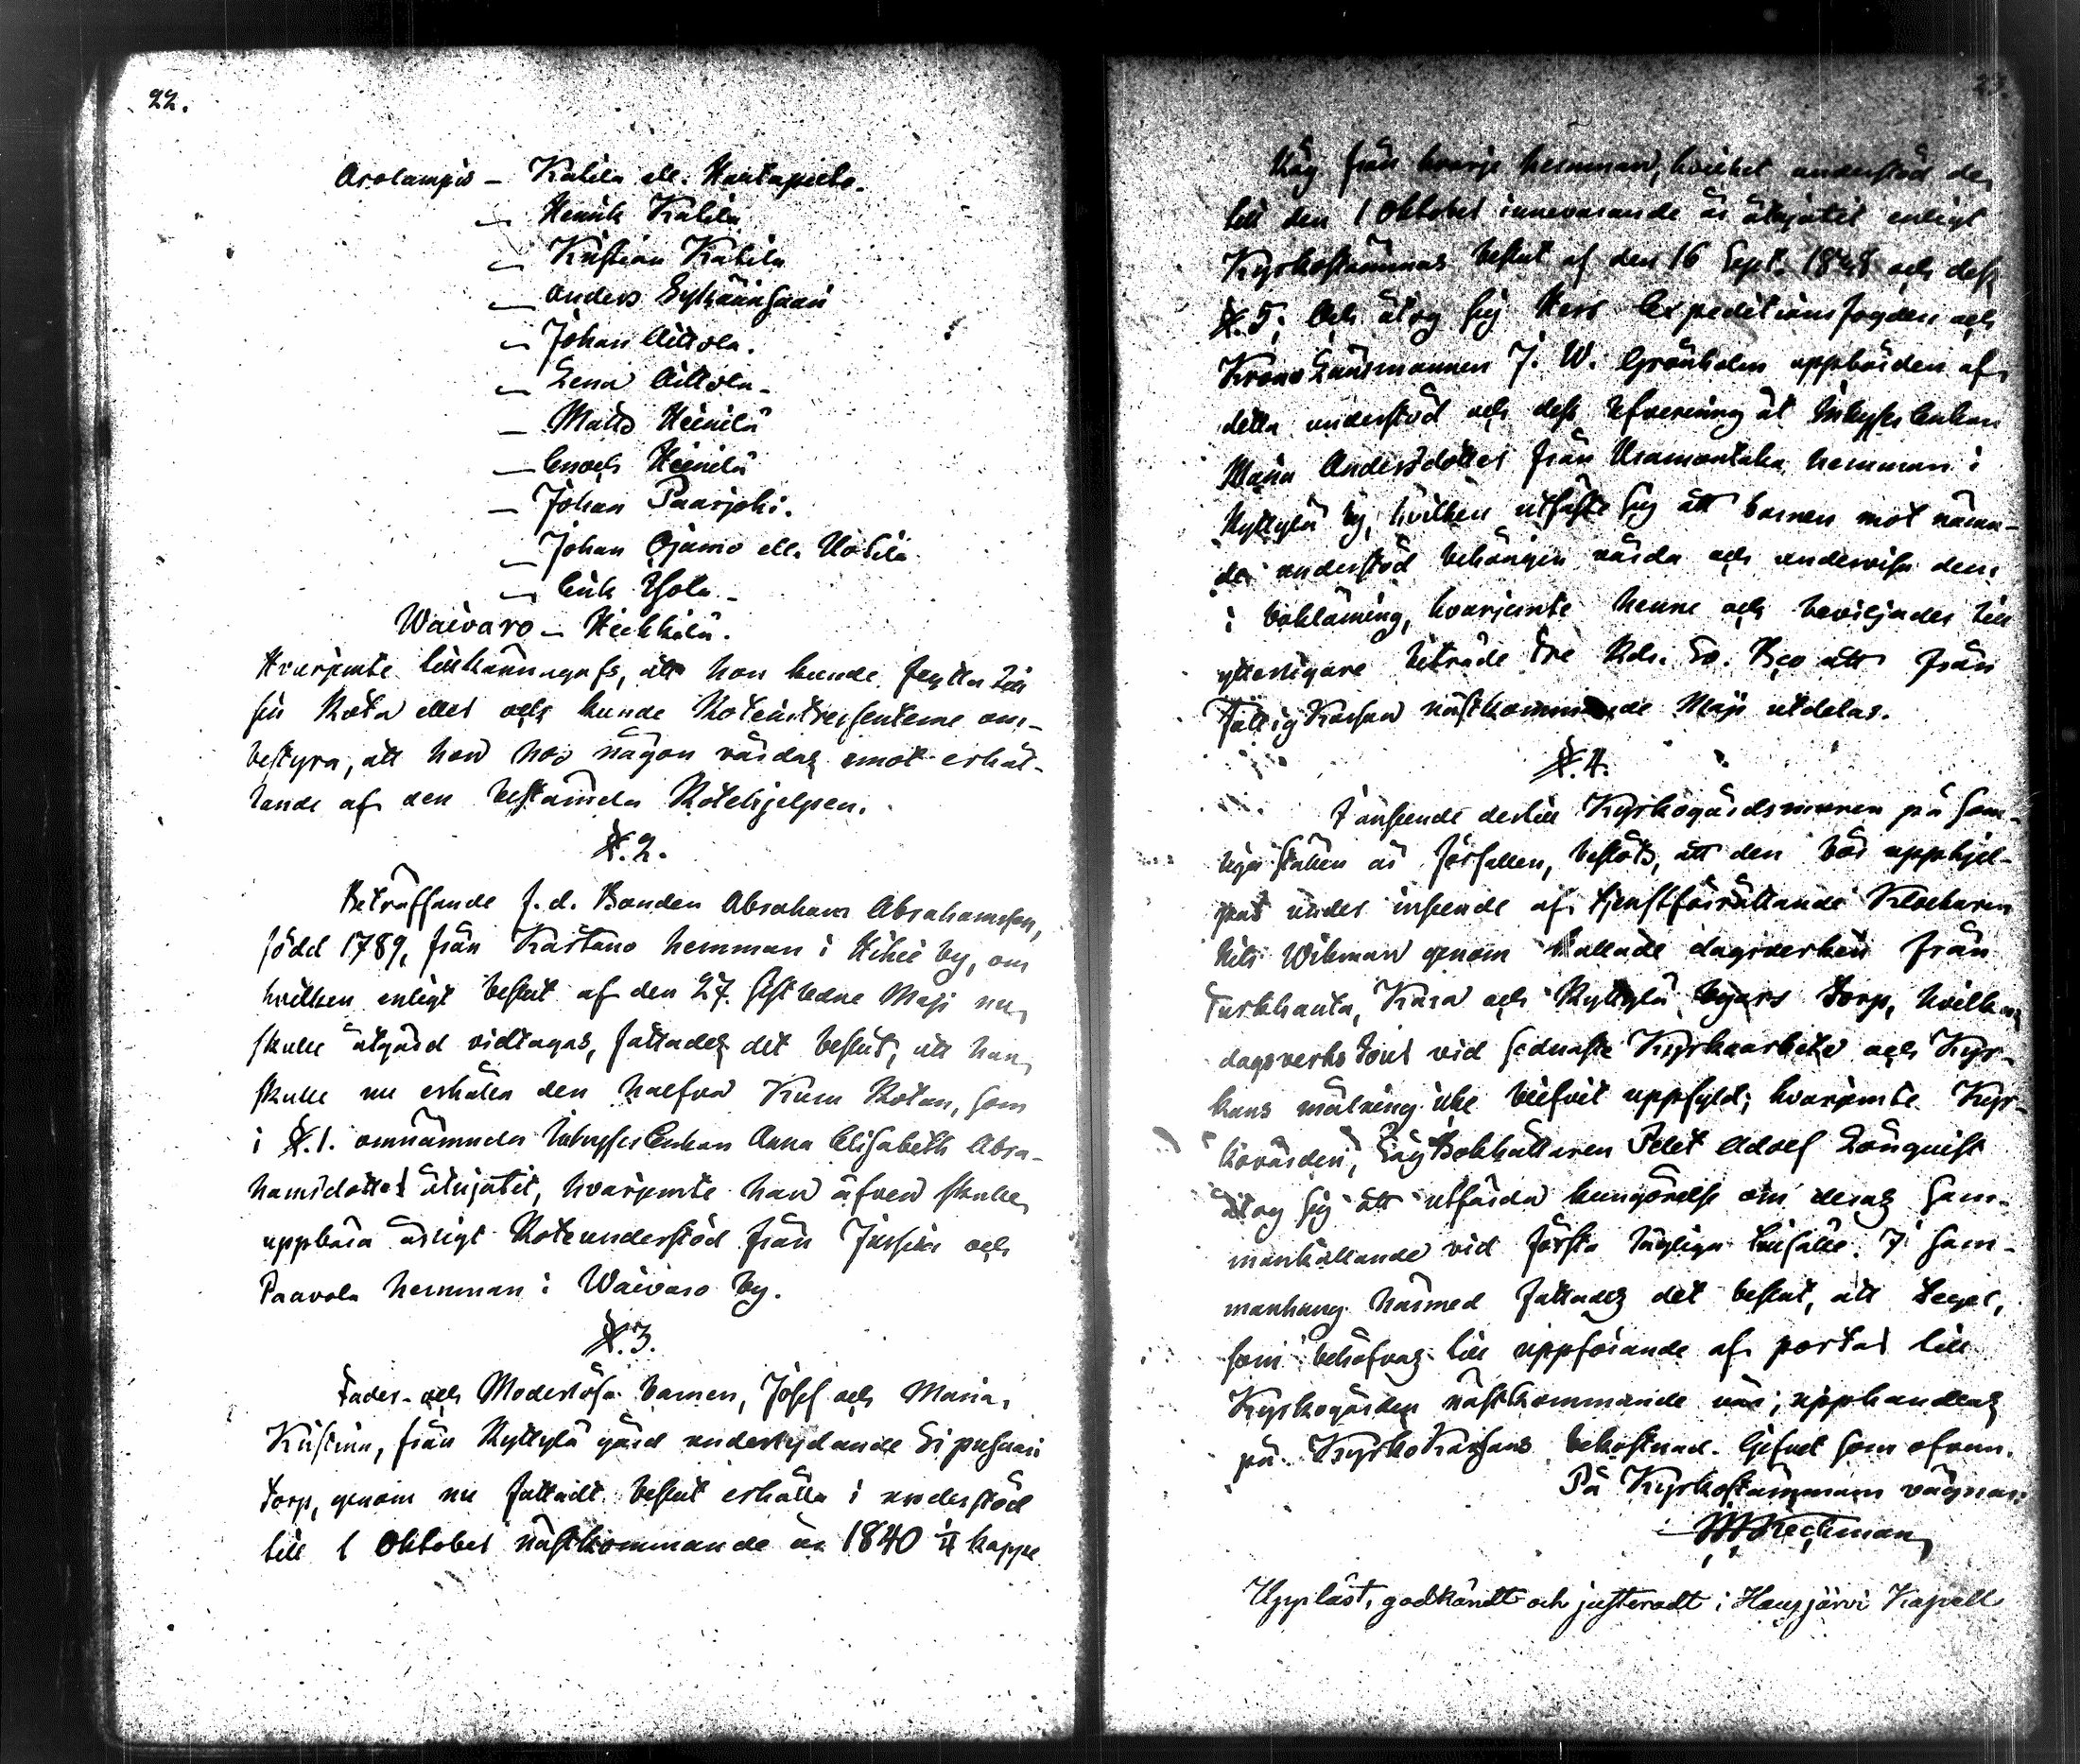 22.
Arolampio – Katila ell. Hautapelto.
– Henrik Katila
– Kristian Katila
– Anders Sykäärinsaari
– Johan Aittola.
– Lena Aittola –
– Matts Heinilä
– Enoch Heinilä
– Johan Paarjoki.
– Johan Ojamo ell. Uotila
– Erik Ylola –
Waivaro – Heikkilä.
Hvarjemte tillkännagafs, att hon kunde flytta till
sin Rota eller och kunde Roteintressenterne om-
bestyra, att hon hos någon vårdas emot erhål-
lande af den bestämda Rotehjelpen.
§. 2.
Beträffande f. d. Bonden Abraham Abrahamsson,
född 1789, från Kaštano hemman i Hikiä by, om
hvilken enligt beslut af den 27. sistledne Maji nu
skulle åtgärd vidtagas, fattades det beslut, att han
skulle nu erhålla den halfva Kara Rotan, som
i §. 1. omnämnda Inhyses Enkan Anna Elisabeth Abra-
hamsdotter åtnjutit, hvarjemte han äfven skulle
uppbära årligt Roteunderstöd från Jussila och
Paavola hemman i Waivaro by.
§. 3.
Fader- och Moderlösa barnen, Josef och Maria
Kristina, från Ryttylä gård underlydande Sipusaari
torp, genom nu fattadt beslut erhålla i understöd
till 1 Oktober nästkommande år 1840 1/4 kappe
Råg från hvarje hemman, hvilket understöd de
till den 1 Oktober innevarande år åtnjutit enligt
Kyrkostämmas beslut af den 16 Sept. 1848 och dess
§. 5; Och åtog sig Herr Expeditionsfogden och
Krono Länsmannen J. W. Grönholm uppbörden af
detta understöd och dess lefverering åt Inhyses Enkan
Maria Andersdotter från Uramontaka hemman i
Ryttylä by, hvilken utfäste sig att barnen mot nämn-
de understöd behörigen vårda och undervisa dem
i bokläsning, hvarjemte henne och beviljades till
ytterligare biträde Tre Rdr. Sv. Bco att från
Fattig Kassan nästkommande Maji utdelas.
§. 4.
I anseende dertill Kyrkogårdsmuren på som-
liga ställen är förfallen, beslöts, att den bör upphjel-
pas under inseende af tjenstförrättande Klockaren
Nils Wikman genom kallade dagsverken från
Turkhauta, Kara och Ryttylä byars torp, hvilka
dagsverks vid sednaste Kyrkoarbete och Kyr-
kans målning icke blifvit uppfyld; hvarjemte Kyr-
kovärden, Bokhållaren Adolf Lönqvist
åtog sig att utfärda kungörelse om deras sam-
mankallande vid första lägliga tillfälle. I sam-
manhang härmed fattades det beslut, att tegel,
som behöfvas till uppförande af portar till
Kyrkogården nästkommande vår, upphandlas
på Kyrko Kassans bekostnad. Gifvet som ofvan.
På Kyrkostämmans vägnar:
Uppläst, godkändt och justeradt i Hausjärvi Kapell